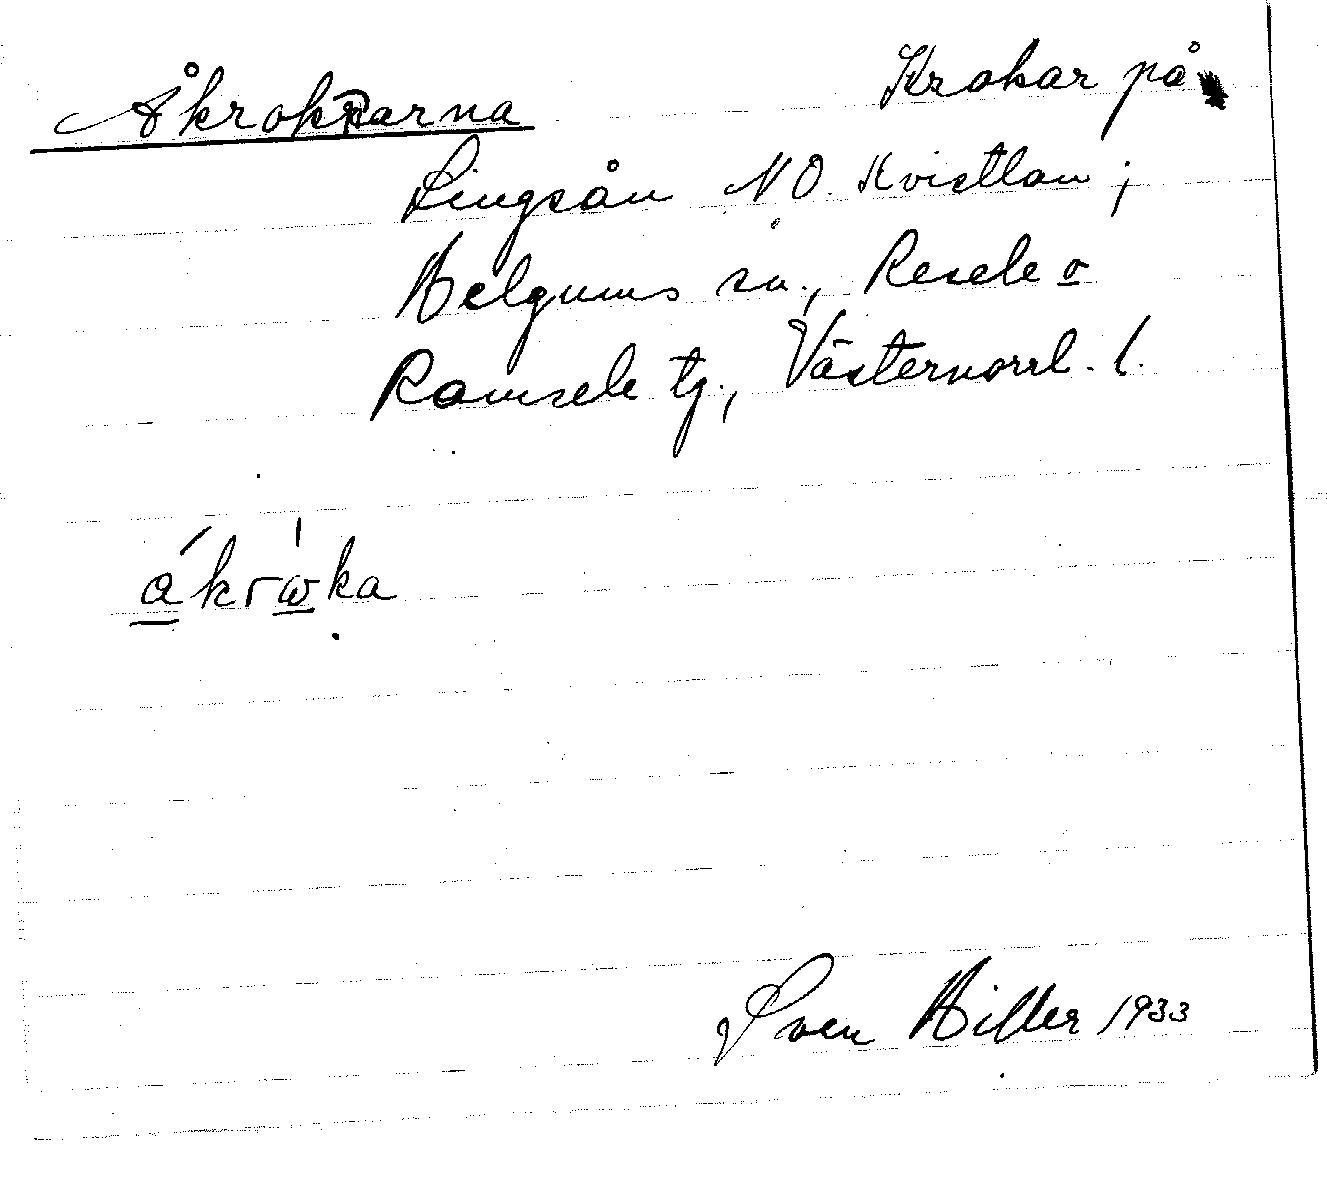 Åkrokarna Krokar på
Lingsån NO. Kvistlan;
Helgums sn., Resele o
Ramsele tg., Västernorrl. l.
åkrωka
Sven Hiller 1933